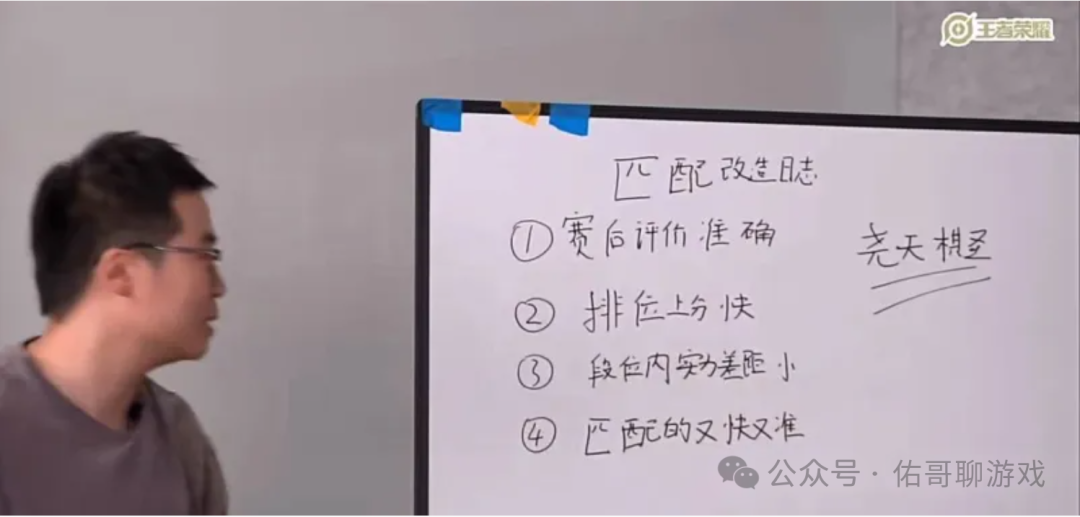 王者荣耀
匹配改造日志
① 赛后评价准确
尧天棋圣
② 排位上分快
③ 段位内实力差距小
④ 匹配的又快又准
公众号·佑哥聊游戏